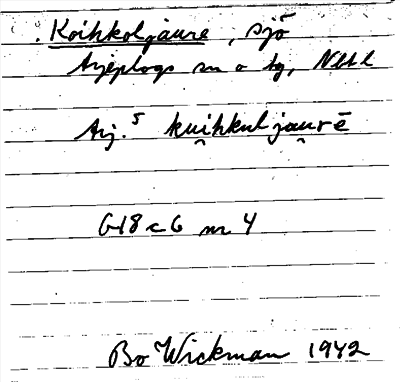 Koihkoljaure, sjö
Arjeplogs sn o tg, Nbtl
Arj.5 kui̭hkul jau̯rē
G18 c 6 nr 4
Bo Wickman 1942